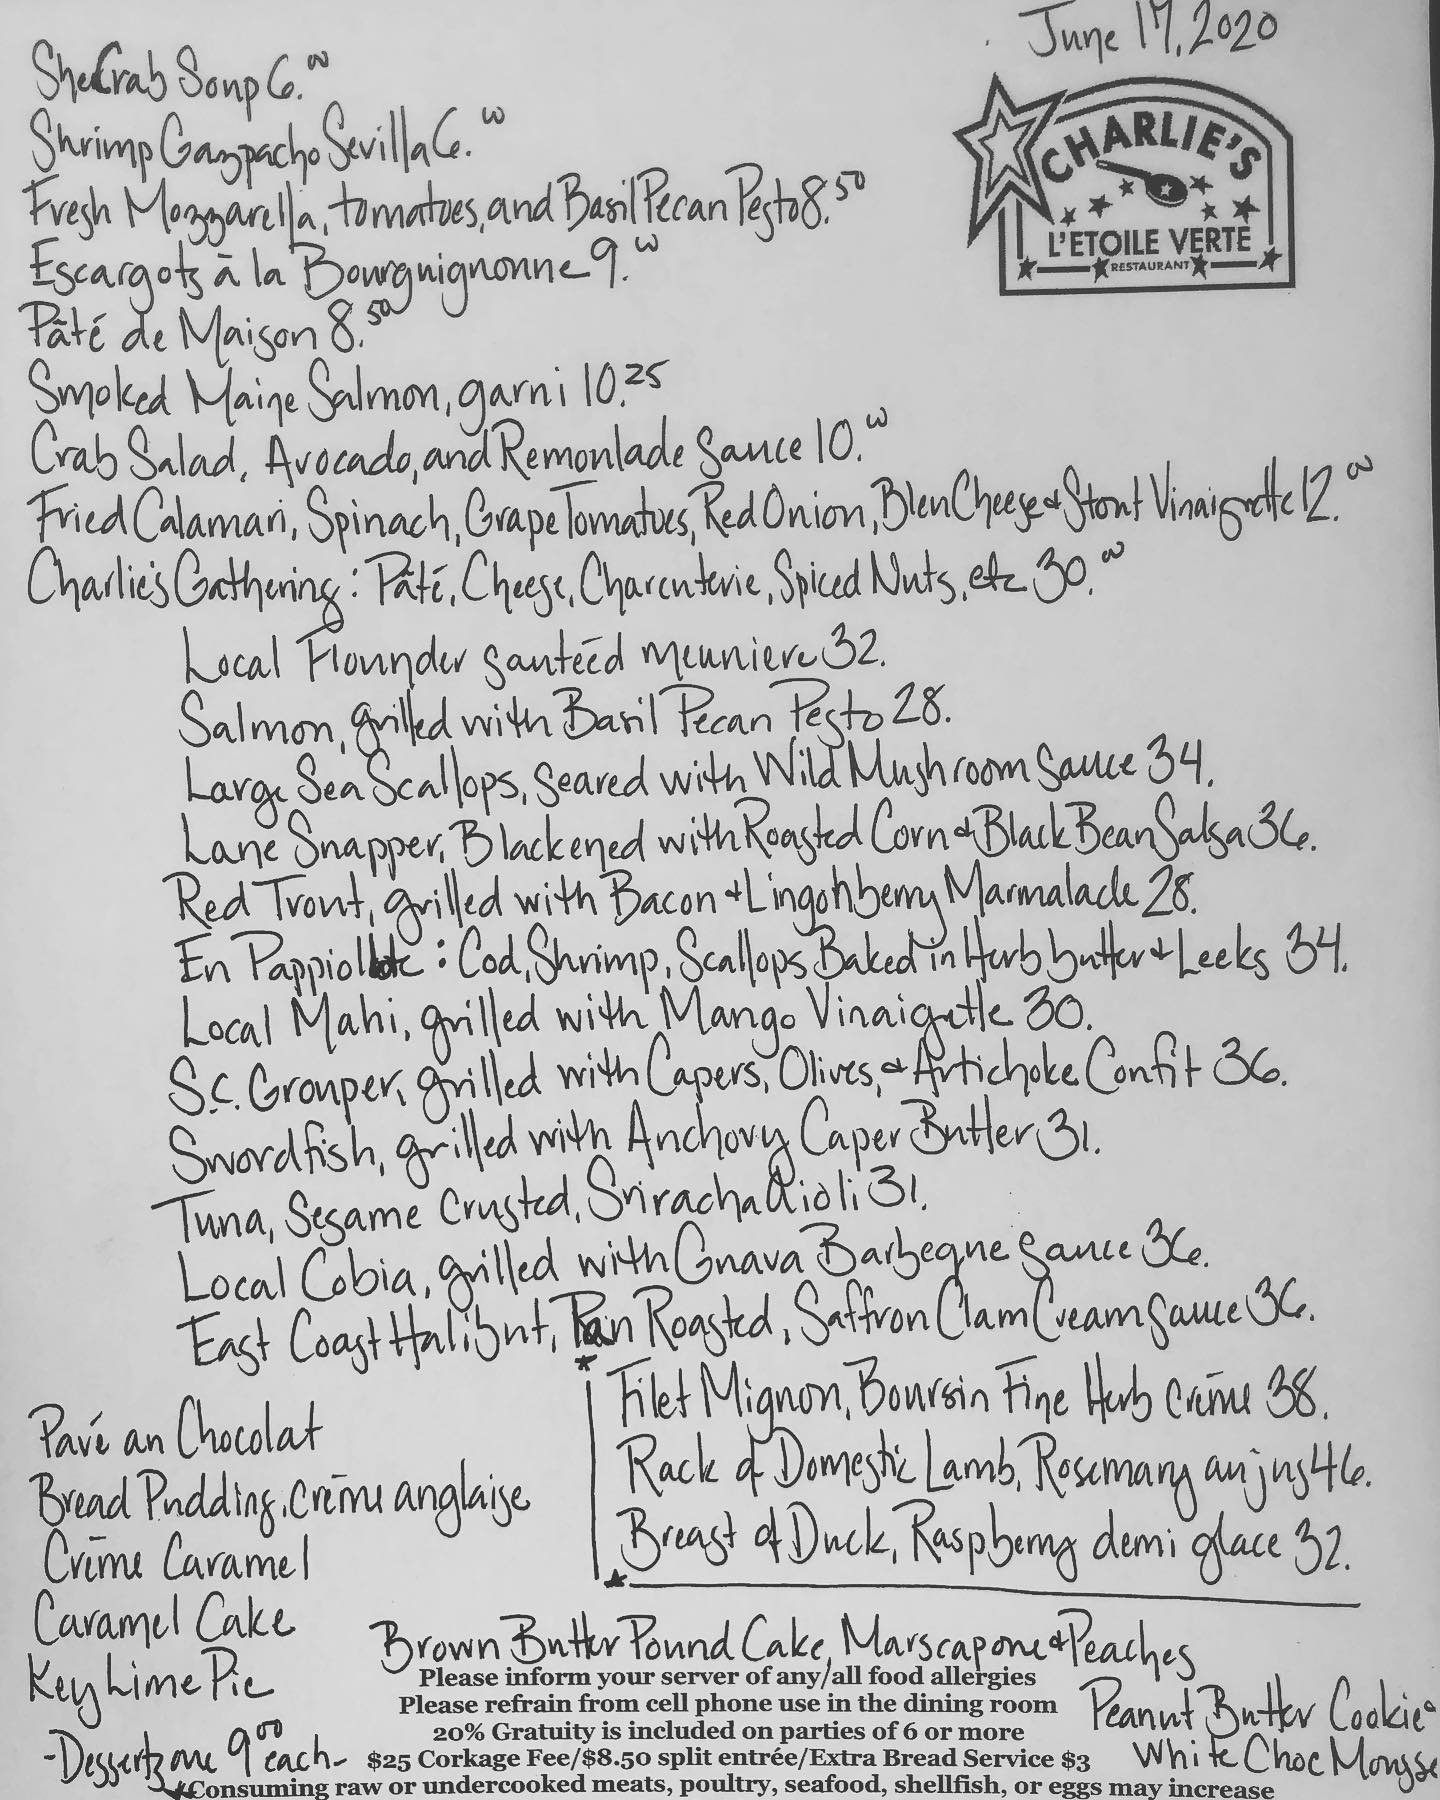 June 17, 2020
CHARLIE'S
L'ETOILE VERTE
RESTAURANT
SheCrab Soup 6.00
Shrimp Gazpacho Sevilla 6.00
Fresh Mozzarella, tomatoes, and Basil Pecan Pesto 8.50
Escargots à la Bourguignonne 9.00
Pâté de Maison 8.50
Smoked Maine Salmon, garni 10.25
Crab Salad, Avocado, and Remoulade Sauce 10.00
Fried Calamari, Spinach, Grape Tomatoes, Red Onion, Bleu Cheese & Stout Vinaigrette 12.00
Charlie's Gathering: Pâté, Cheese, Charcuterie, Spiced Nuts, etc 30.00
Local Flounder sautéed meuniere 32.
Salmon, grilled with Basil Pecan Pesto 28.
Large Sea Scallops, seared with Wild Mushroom Sauce 34.
Lane Snapper, Blackened with Roasted Corn & Black Bean Salsa 36.
Red Trout, grilled with Bacon & Lingonberry Marmalade 28.
En Pappiollote: Cod, Shrimp, Scallops Baked in Herb butter & Leeks 34.
Local Mahi, grilled with Mango Vinaigrette 30.
S.C. Grouper, grilled with Capers, Olives, & Artichoke Confit 36.
Swordfish, grilled with Anchovy Caper Butter 31.
Tuna, Sesame Crusted, Sriracha Aioli 31.
Local Cobia, grilled with Guava Barbeque Sauce 36.
East Coast Halibut, Pan Roasted, Saffron Clam Cream Sauce 36.
Filet Mignon, Boursin Fine Herb Crème 38.
Rack of Domestic Lamb, Rosemary au jus 46.
Breast of Duck, Raspberry demi glace 32.
Pavé au Chocolat
Bread Pudding, crème anglaise
Crème Caramel
Caramel Cake
Key Lime Pie
-Desserts are 9.00 each-
Brown Butter Pound Cake, Marscapone & Peaches
Peanut Butter Cookie
White Choc Mousse
Please inform your server of any/all food allergies
Please refrain from cell phone use in the dining room
20% Gratuity is included on parties of 6 or more
$25 Corkage Fee/$8.50 split entrée/Extra Bread Service $3
*Consuming raw or undercooked meats, poultry, seafood, shellfish, or eggs may increase